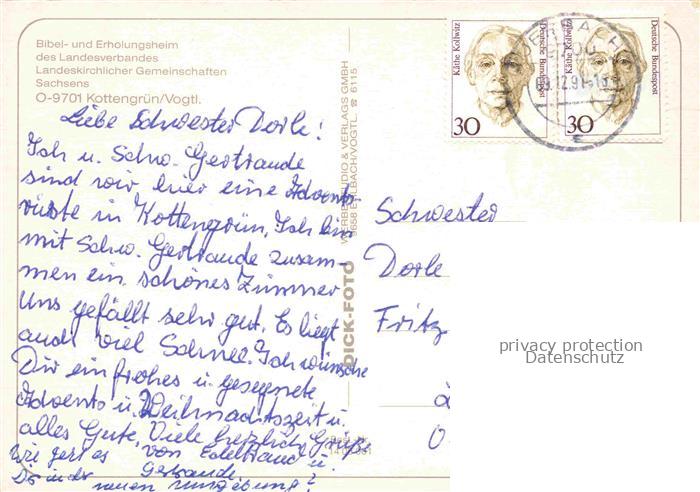 Bibel- und Erholungsheim
des Landesverbandes
Landeskirchlicher Gemeinschaften
Sachsens
O-9701 Kottengrün/Vogtl.
Liebe Schwester Dorle!
Ich u. Schw. Gertraude
sind wir hier eine Advents-
rüste in Kottengrün. Ich bin
mit Schw. Gertraude zusam-
men ein schönes Zimmer
Uns gefällt sehr gut. Es liegt
auch viel Schnee. Ich wünsche
Dir ein frohes u. gesegnete
Advents u. Weihnachtszeit u.
alles Gute. Viele herzlich Grüße
von Edeltraud u.
Gertraude.
Wie geht es
Dir in der
neuen Umgebung?
DICK-FOTO
WERBESTUDIO & VERLAGS GMBH
9658 ERLBACH/VOGTL. ☎ 6115
Käthe Kollwitz
Deutsche Bundespost
30
Käthe Kollwitz
Deutsche Bundespost
30
Schwester
Dorle
Fritz
O
privacy protection
Datenschutz